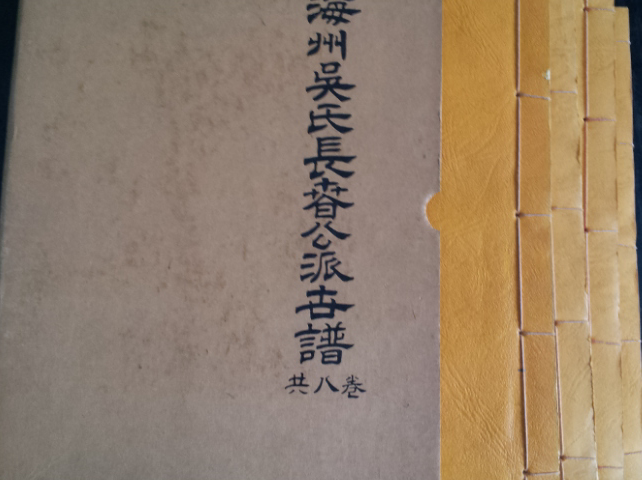 海州吳氏長春公派世譜
共八卷